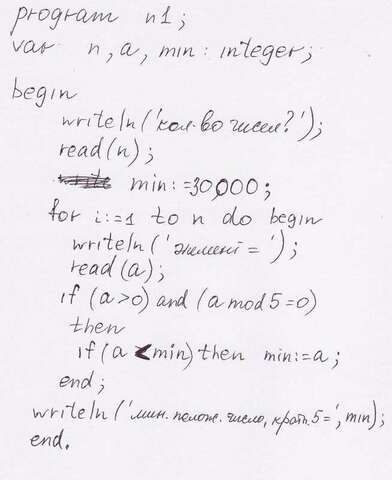 program n1;
var n, a, min: integer;
begin
writeln('кол. во чисел?');
read(n);
min:=30000;
for i:=1 to n do begin
writeln('элемент = ');
read(a);
if (a>0) and (a mod 5=0)
then
if (a<min) then min:=a;
end;
writeln('мин. полож. число, кратн. 5=', min);
end.